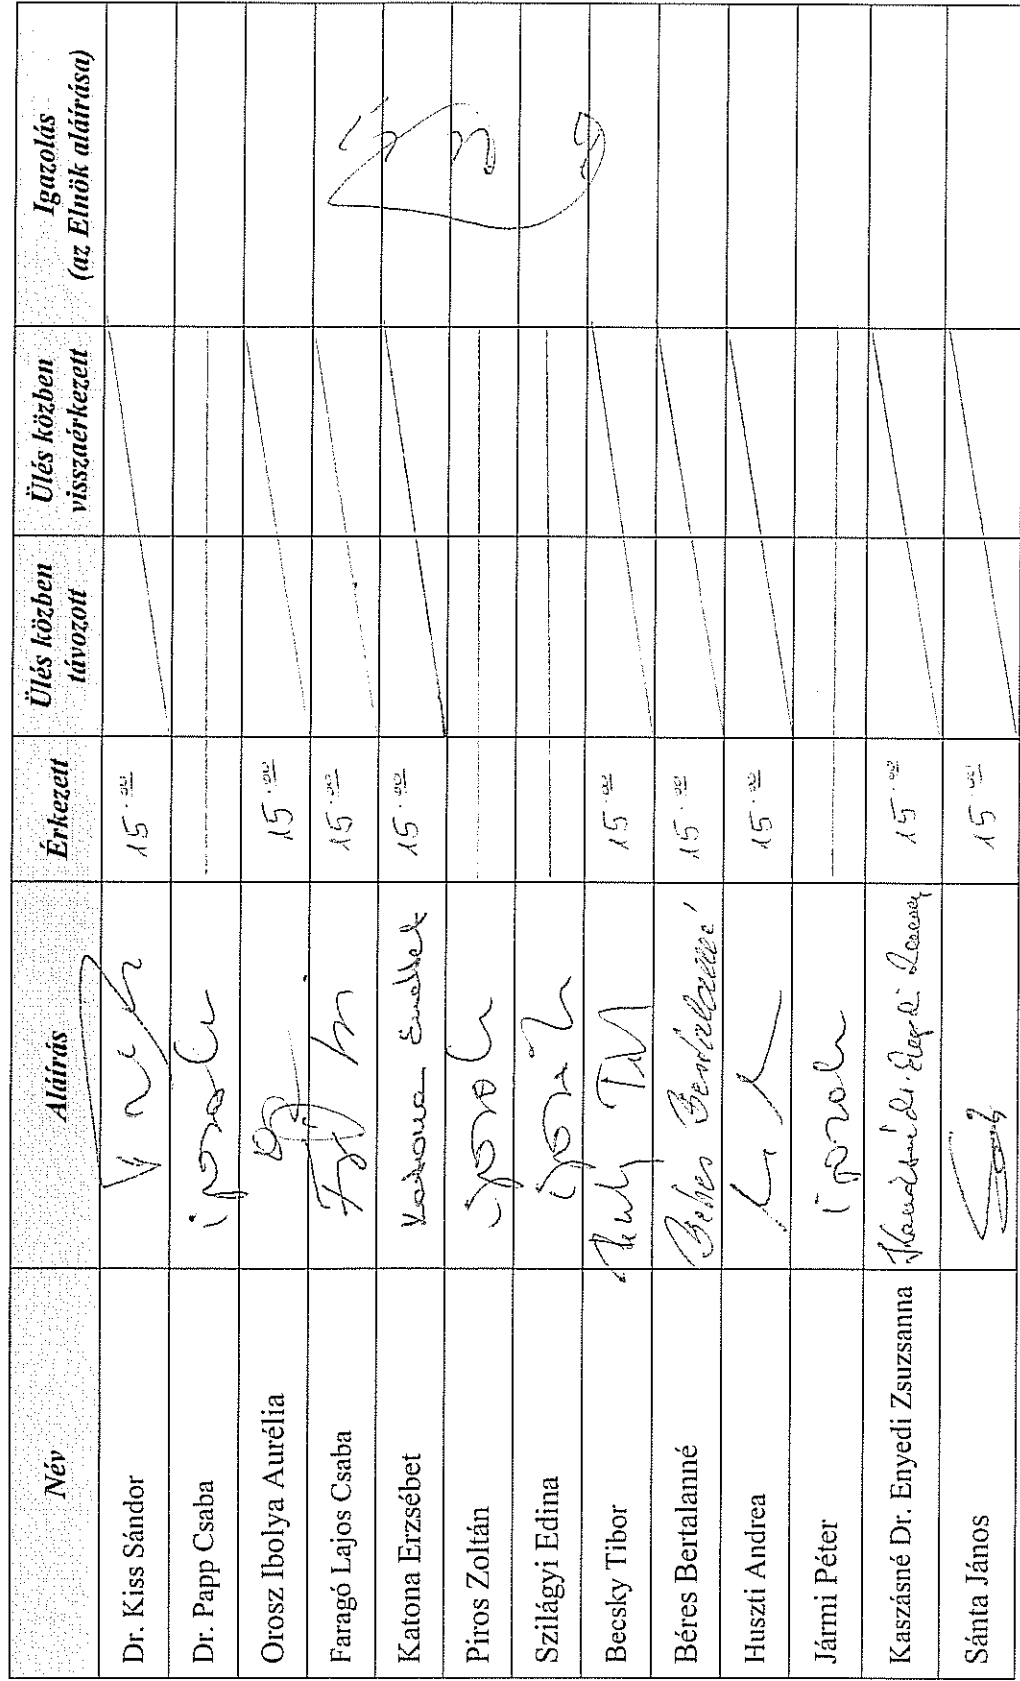 Név Aláírás Érkezett Ülés közben távozott Ülés közben visszaérkezett Igazolás (az Elnök aláírása)
Dr. Kiss Sándor 15.00
Dr. Papp Csaba igazolt
Orosz Ibolya Aurélia 15.00
Faragó Lajos Csaba 15.00
Katona Erzsébet Katona Erzsébet 15.00
Piros Zoltán igazolt
Szilágyi Edina igazolt
Becsky Tibor 15.00
Béres Bertalanné Béres Bertalanné 15.00
Huszti Andrea 15.00
Jármi Péter igazolt
Kaszásné Dr. Enyedi Zsuzsanna 15.00
Sánta János 15.00